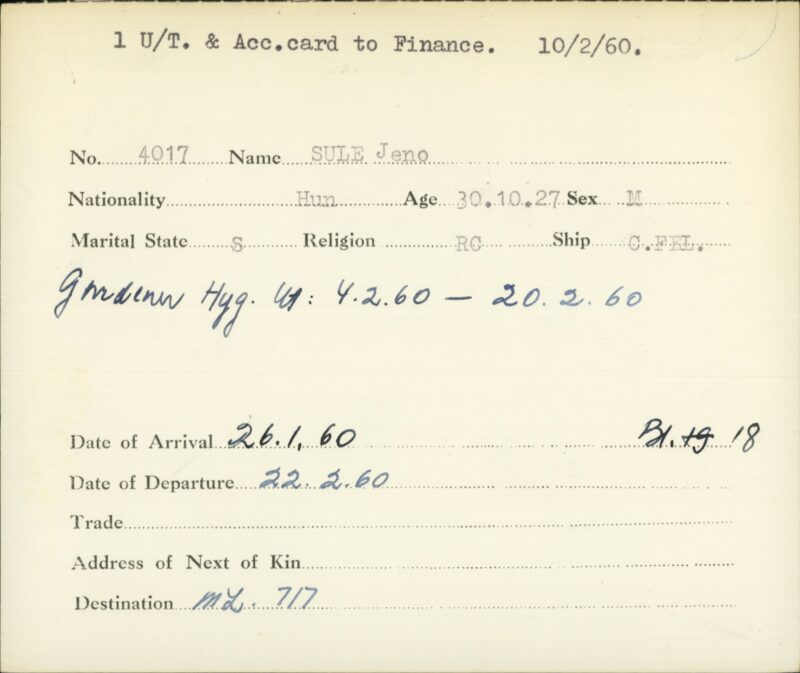 1 U/T. & Acc.card to Finance. 10/2/60.
No. 4017 Name SULE Jeno
Nationality Hun Age 30.10.27 Sex M
Marital State S Religion RC Ship C.FEL.
Gardener Hyg. Ut: 4.2.60 — 20.2.60
Date of Arrival 26.1.60 Bl. 19 18
Date of Departure 22.2.60
Trade
Address of Next of Kin
Destination ML. 717